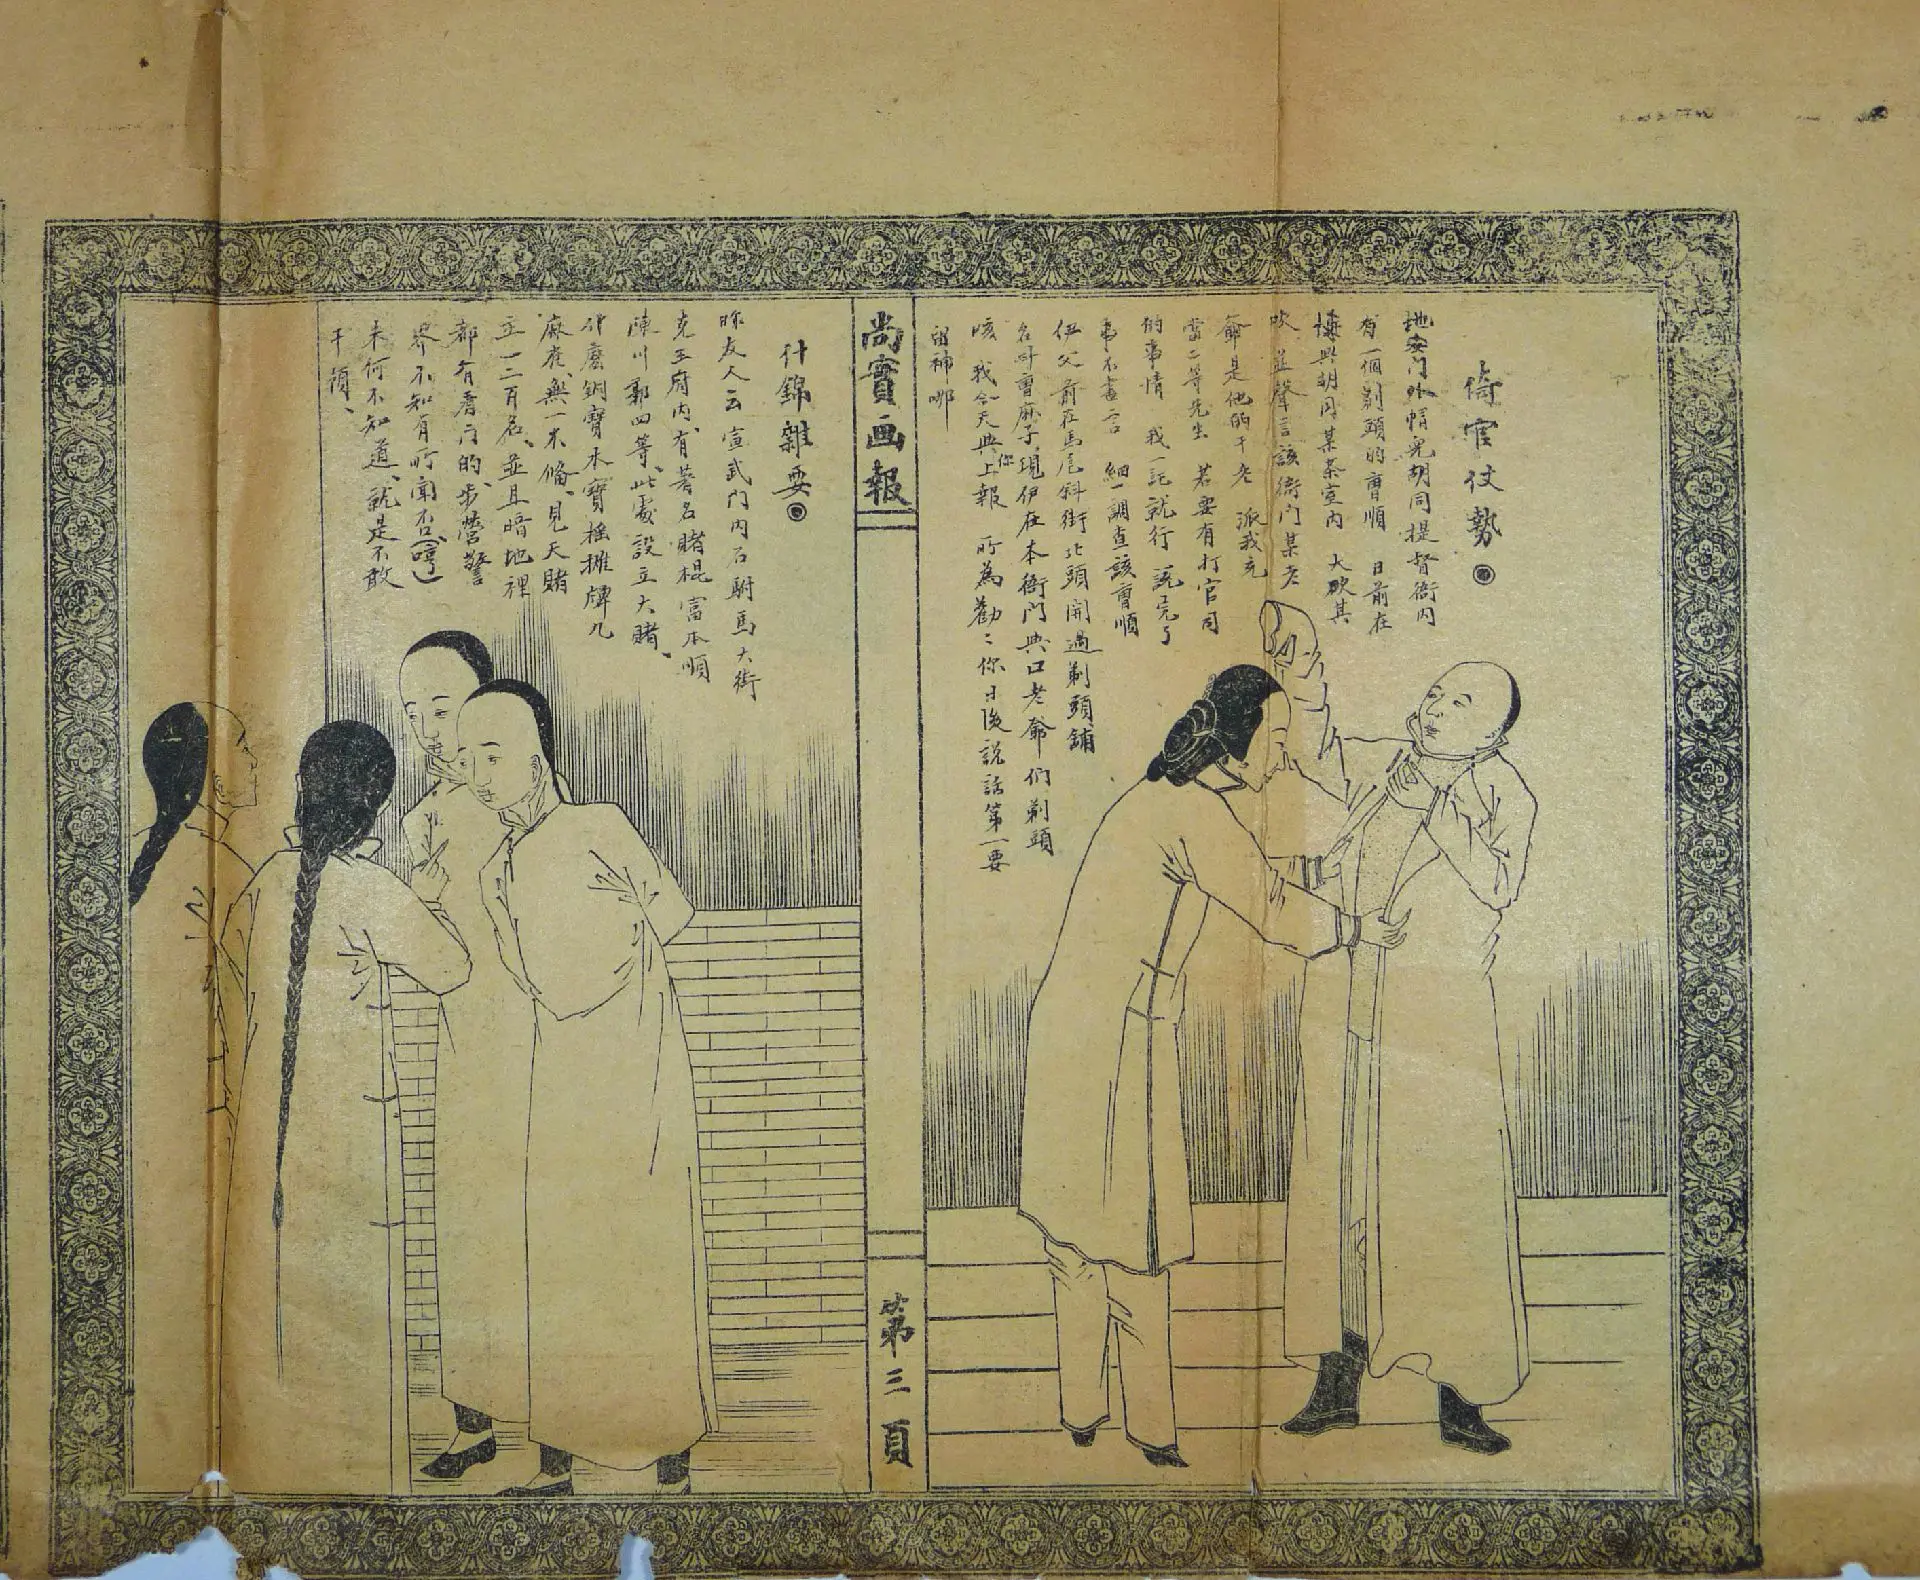 倚官仗勢
地安門外帽兒胡同提督衙內
有一個剃頭的曹順 日前在
博興胡同某茶室內 大砍其
吹 並聲言該衙門某老
爺是他的干老 派我充
當二等先生 若要有打官司
的事情 我一託就行 說完了
事不盡言 細一調查該曹順
伊父前在馬尾斜街北頭開過剃頭鋪
名叫曹麻子現伊在本衙門與口老爺們剃頭
咳 我今天與你上報 所為勸〻你日後說話第一要
留神哪
尚實画報
第三頁
什錦雜耍
昨友人云宣武門內石駙馬大街
克王府內、有著名賭棍富本順
陳川郭四等、此處設立大賭、
什麼銅寶木寶搖攤牌九
麻雀、無一不偹、見天賭
立一二百名、並且暗地裡
都有看門的、步營警
界不知有所聞否、
未何不知道、就是不敢
干預、